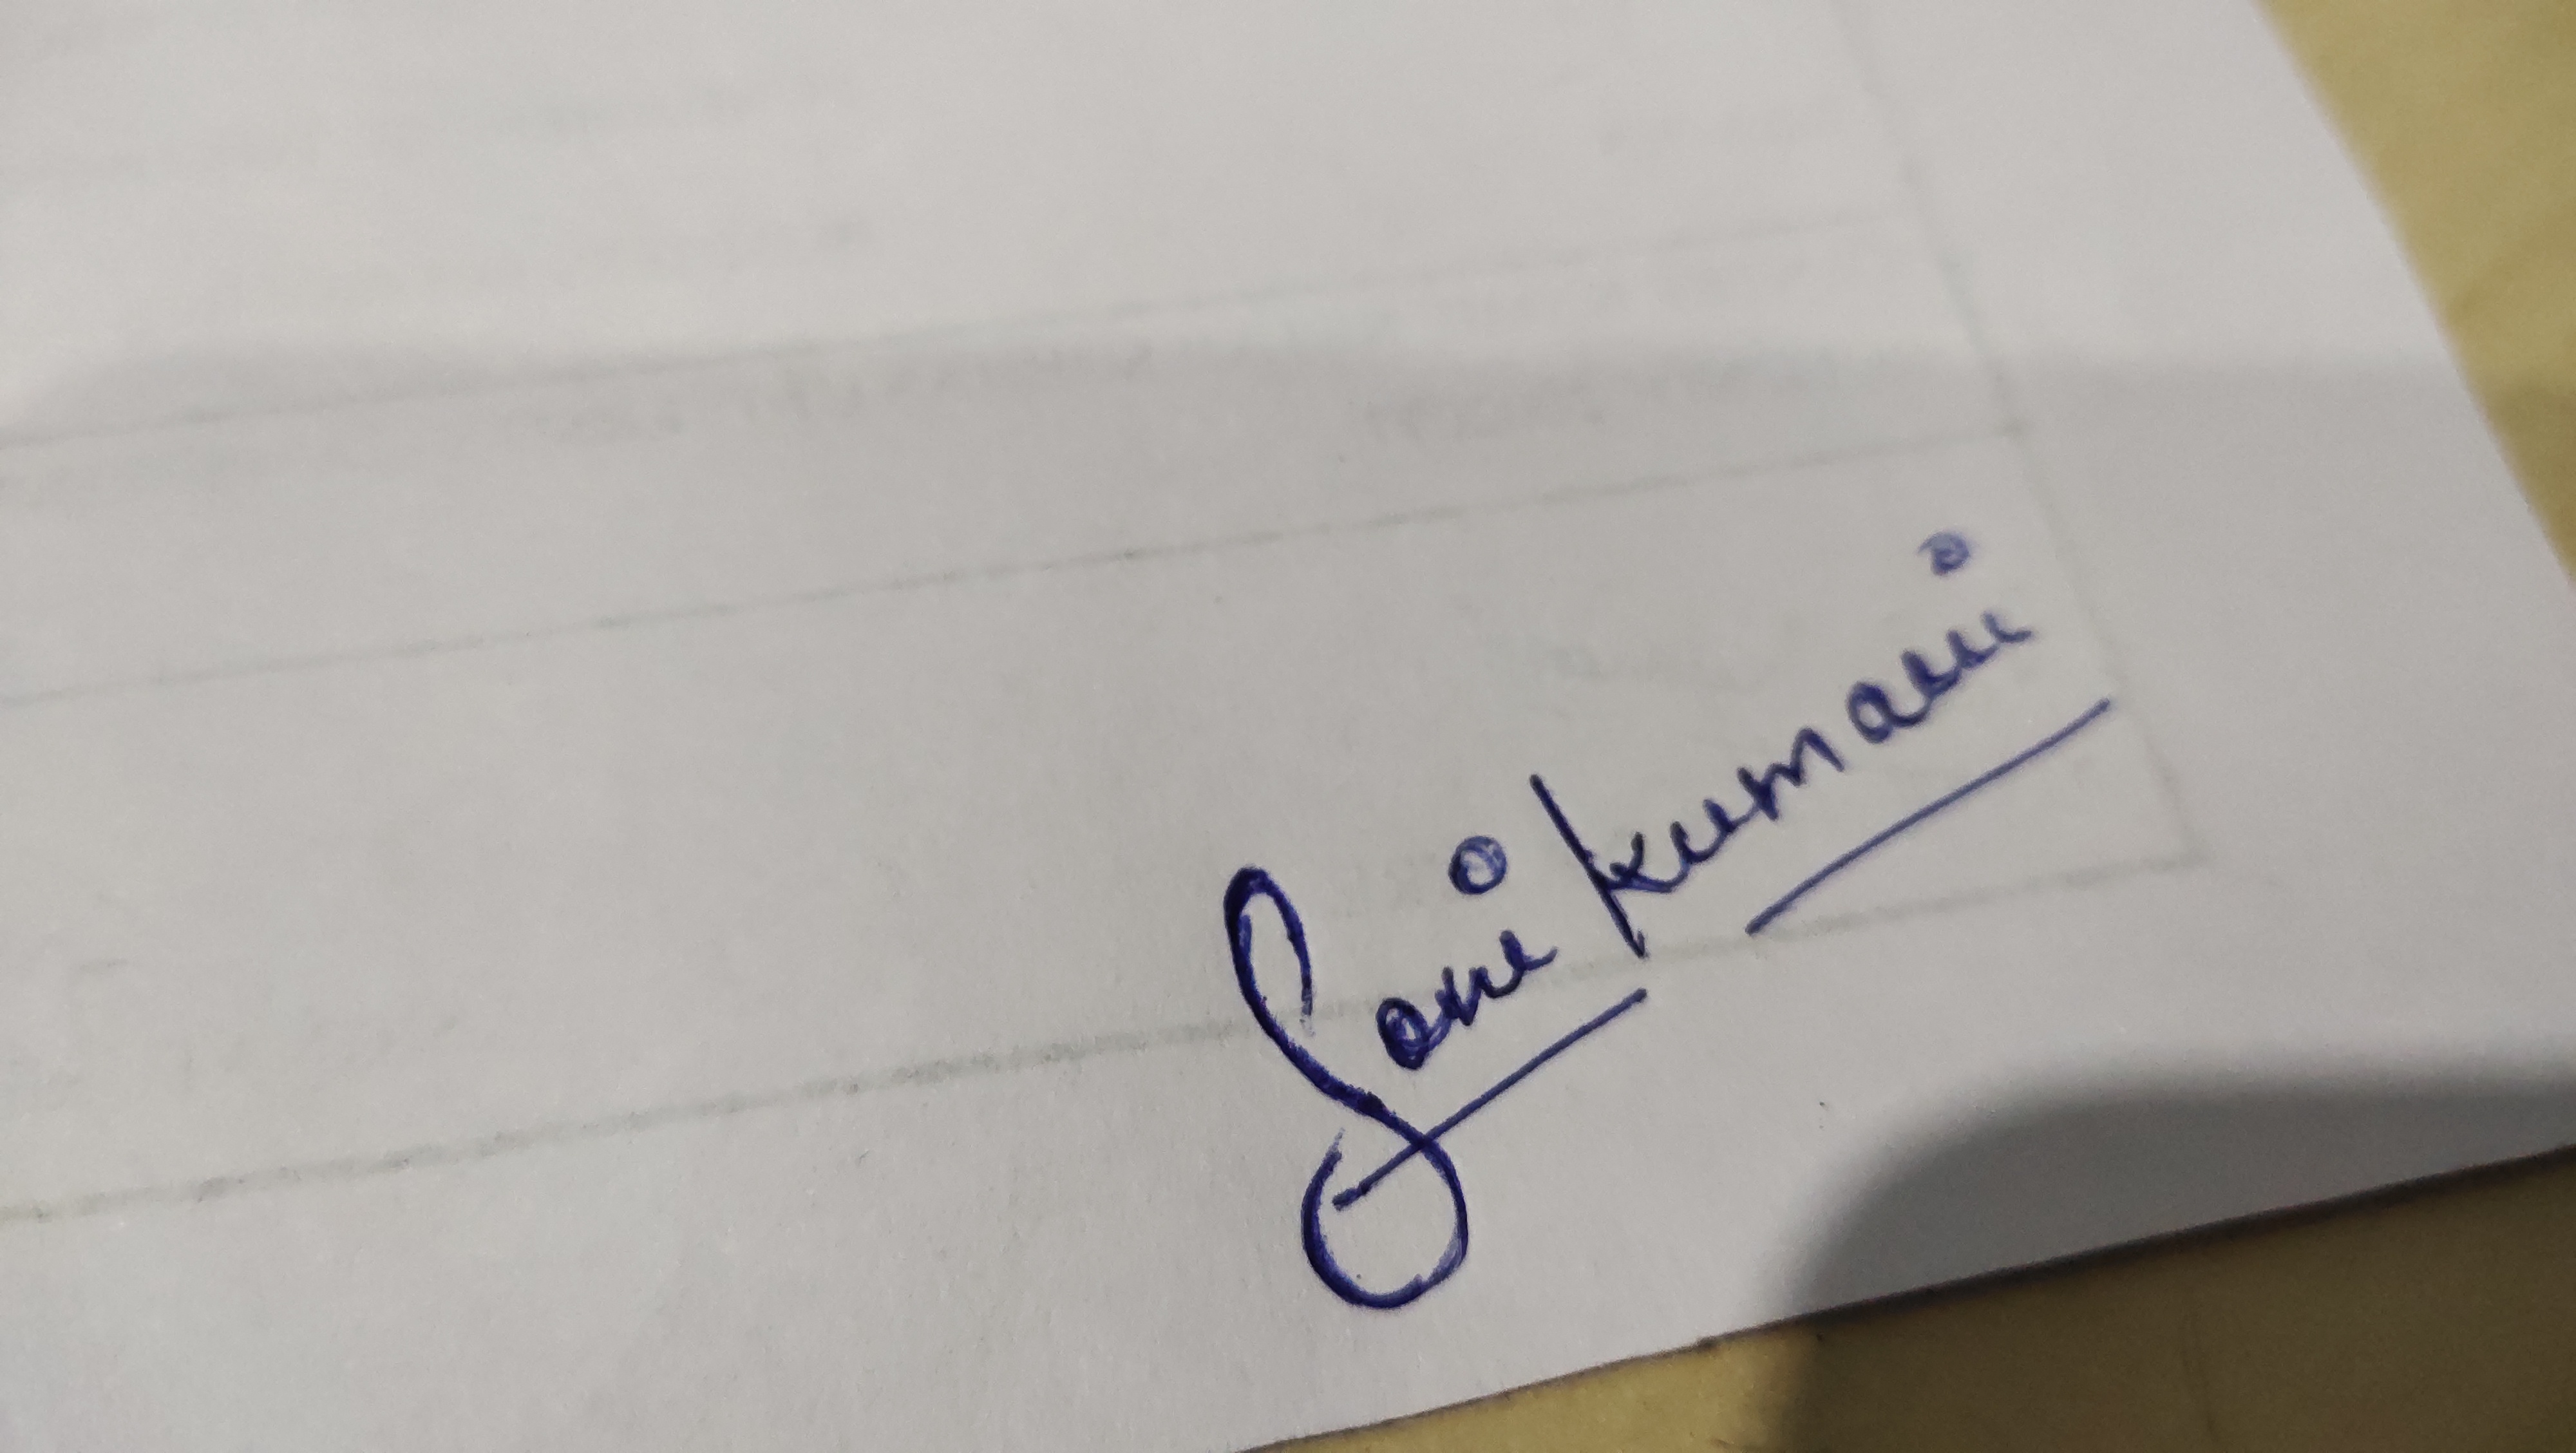 Soni kumari